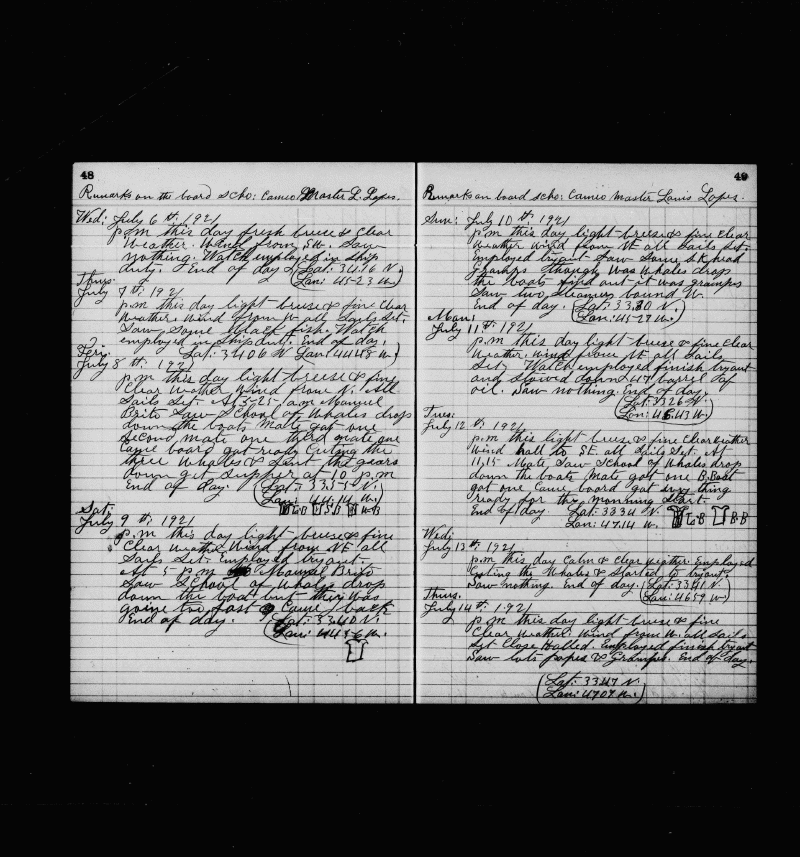 48
Remarks on the board Scho: Cameo Master L. Lopes.
Wed: July 6th, 1921
p.m this day fresh breeze & Clear
Weather. Wind from SW. Saw
nothing. Watch employed in Ship
duty. End of day (Lat: 3416 N.
Lon: 45-23 W.)
Thurs:
July 7th, 1921
p.m this day light breeze & fine Clear
Weather. Wind from W all Sails Set.
Saw Some black fish. Watch
employed in Ship duty. End of day.
Lat: 3406 N. Lon: 4448 W)
Fery:
July 8th, 1921
p.m this day light breeze & fine
Clear Weather Wind from N. all
Sails Set. At 5-25 a.m Manuel
Brito Saw School of Whales drop
down the boats Mate got one
Second mate one third mate one
Came board got ready Cuting the
three Whales & Sent the gears
down get Supper at 10 p.m
End of day. (Lat: 3335 N.
Lon: 4414 W.)
LB SB WB
Sat:
July 9th, 1921
p.m this day light breeze & fine
Clear Weather Wind from NE all
Sails Set. Employed bryant.
At 5-p.m Manuel Brito
Saw School of Whales drop
down the boat but they was
going too fast Came back
End of day. (Lat: 3340 N.
Lon: 4456 W.
49
Remarks on board Scho: Cameo Master Louis Lopes.
Sun: July 10th, 1921
p.m this day light-breese & fine Clear
Weather Wind from NE all Sails Set.
Employed bryant Saw Some SKhead
Gramps though Was Whales drop
the boats find out it was gramps
Saw two Steamers bound W.
End of day. (Lat: 3330 N.
Lon: 45-29 W.)
Mon:
July 11th, 1921
p.m this day light breese & fine Clear
Weather. Wind from NE all Sails
Set. Watch employed finish bryant
and Stowed down 47 barrel of
oil. Saw nothing. End of day.
(Lat: 3326 N.
Lon: 4643 W.)
Tues:
July 12th, 1921
p.m this light breese & fine Clear Weather
Wind hall to SE. all Sails Set. At
11,15 Mate Saw School of Whales drop
down the boats Mate got one B.Boat
got one Came board got evry thing
ready for the morning Start.
End of day Lat: 3334 N.
Lon: 4714 W.
LB BB
Wed:
July 13th, 1921
p.m this day Calm & Clear Weather. Employed
Cuting the Whales & Started to bryant.
Saw nothing. End of day. (Lat: 3341 N.
Lon: 4659 W.)
Thurs.
July 14th, 1921
p.m this day light breese & fine
Clear Weather. Wind from W. all Sails
Set Close Halled. Employed finish bryant
Saw lots popes & Gramps. End of day.
(Lat: 3347 N.
Lon: 4707 W.)